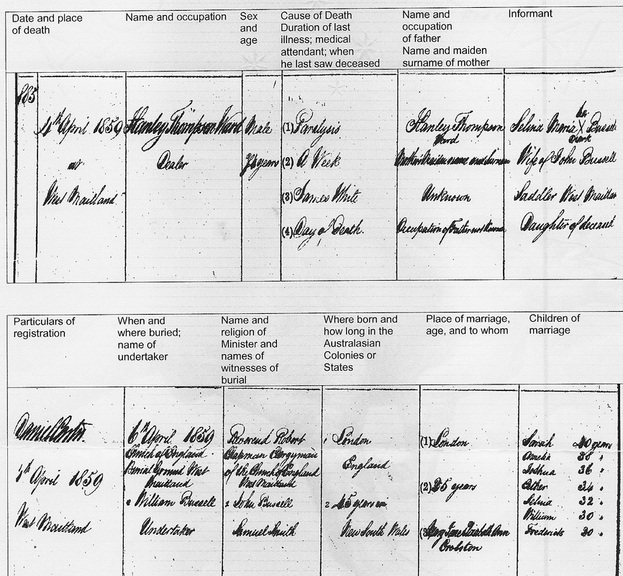 Date and place
of death
Name and occupation
Sex
and
age
Cause of Death
Duration of last
illness; medical
attendant; when
he last saw deceased
Name and
occupation
of father
Name and maiden
surname of mother
Informant
885
4th April 1859
at
West Maitland
Stanley Thompson Ward
Dealer
Male
years
(1) Paralysis
(2) A Week
(3) James White
(4) Day of Death.
Stanley Thompson
Ward
Unknown
Selina Maria X Bussell
her
mark
Wife of John Bussell
Saddler West Maitland
Daughter of deceased
Particulars of
registration
When and
where buried;
name of
undertaker
Name and
religion of
Minister and
names of
witnesses of
burial
Where born and
how long in the
Australasian
Colonies or
States
Place of marriage,
age, and to whom
Children of
marriage
April 1859
West Maitland
6th April 1859
Church of England
Burial Ground West
Maitland
William Bussell
Undertaker
Reverend Robert
Chapman Clergyman
of the Church of England
West Maitland
John Bussell
Samuel Smith
London
England
45 years in
New South Wales
(1) London
(2) 25 years
(3) Mary Jane Elizabeth Ann
Sarah 40 years
Amelia 38 "
Joshua 36 "
Esther 34 "
Selina 32 "
William 30 "
Frederick 20 "